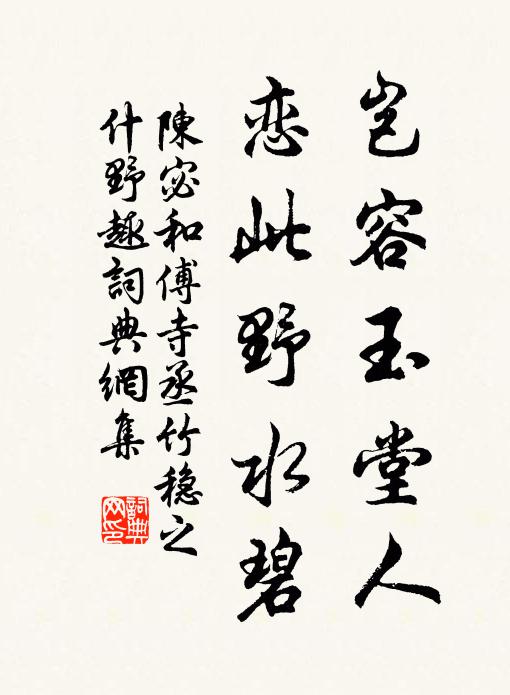 岂容玉堂人
恋此野水碧
陳宓和傅寺丞竹穏之
什野趣詞典網集
詞典
网印